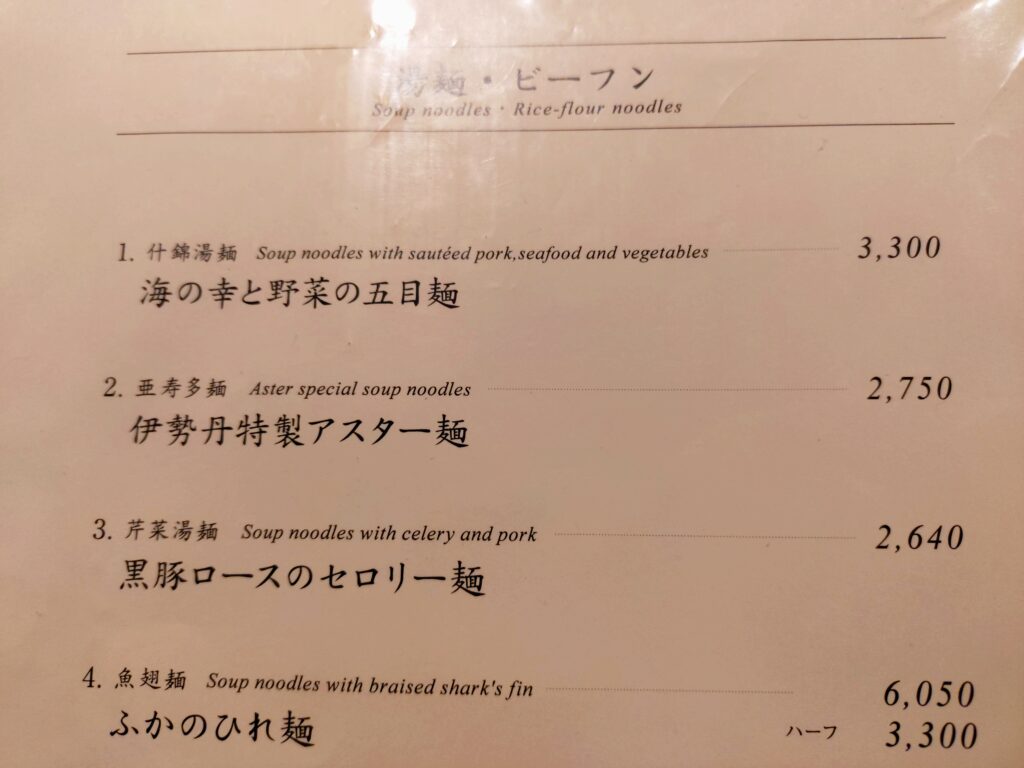 湯麺・ビーフン
Soup noodles・Rice-flour noodles
1. 什錦湯麺 Soup noodles with sautéed pork,seafood and vegetables 3,300
海の幸と野菜の五目麺
2. 亜寿多麺 Aster special soup noodles 2,750
伊勢丹特製アスター麺
3. 芹菜湯麺 Soup noodles with celery and pork 2,640
黒豚ロースのセロリー麺
4. 魚翅麺 Soup noodles with braised shark's fin 6,050
ふかのひれ麺 ハーフ 3,300